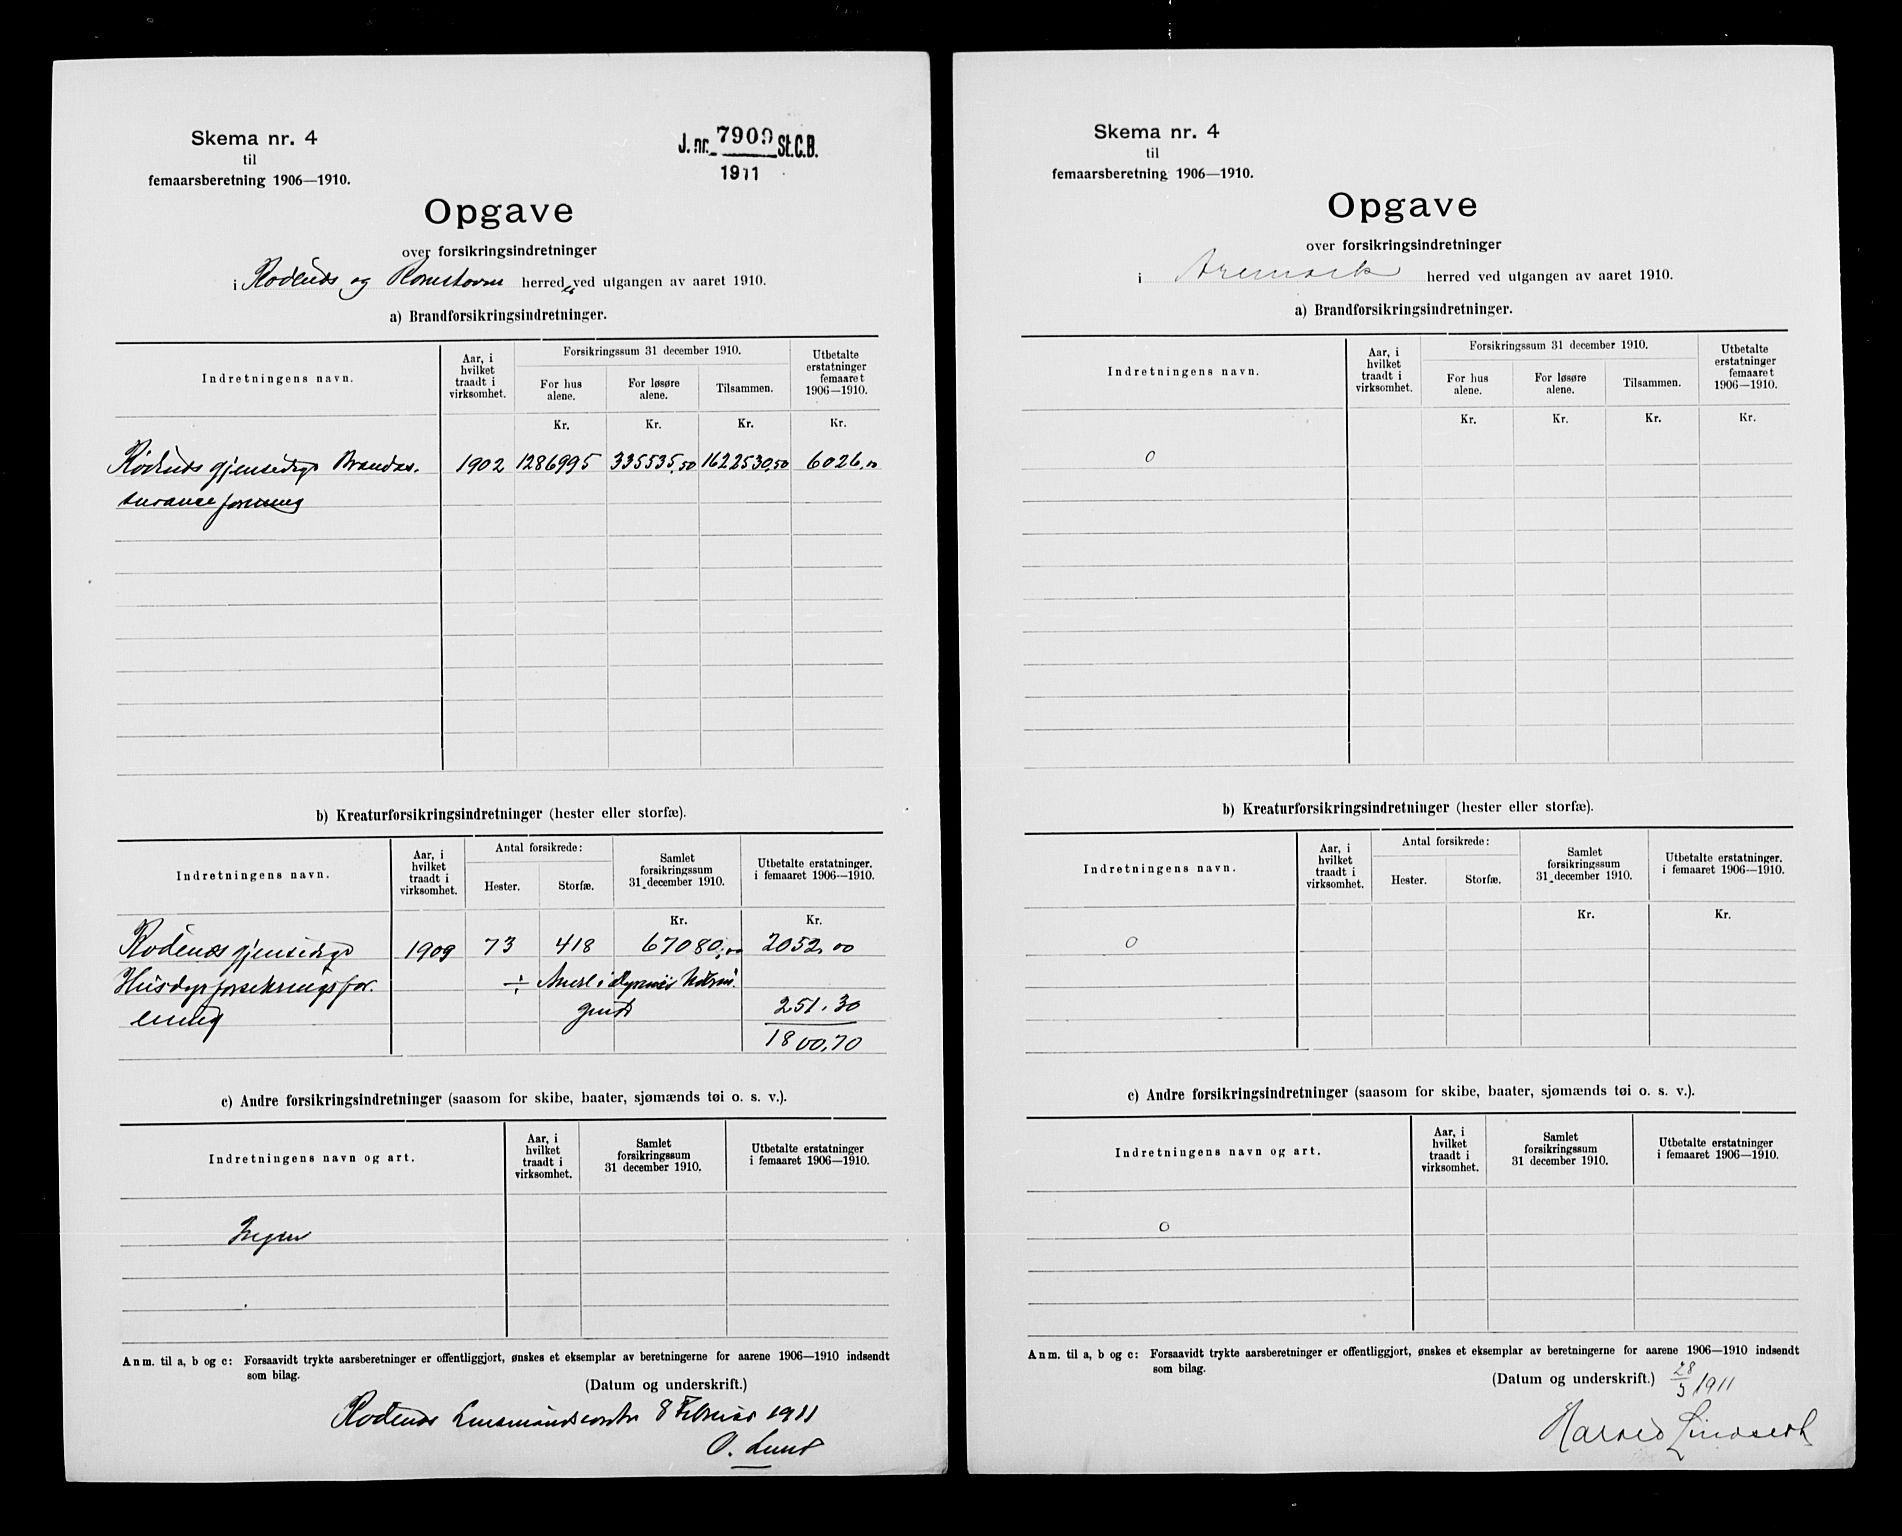 Skema nr. 4
til
femaarsberetning 1906—1910.
J. nr. 7909 St.C.B.
1911
Opgave
over forsikringsindretninger
i Rødenes og Romskogen herred er ved utgangen av aaret 1910.
a) Brandforsikringsindretninger.
Indretningens navn.
Aar, i hvilket traadt i virksomhet.
Forsikringssum 31 december 1910.
For hus alene.
For løsøre alene.
Tilsammen.
Utbetalte erstatninger femaaret 1906—1910.
Kr. Kr. Kr. Kr.
Rødenes gjensidige Brandas- 1902 1286995 335535,50 1622530,50 6026,10
surance forening
b) Kreaturforsikringsindretninger (hester eller storfæ).
Indretningens navn.
Aar, i hvilket traadt i virksomhet.
Antal forsikrede:
Hester.
Storfæ.
Samlet forsikringssum 31 december 1910.
Utbetalte erstatninger. i femaaret 1906—1910.
Kr. Kr.
Rødenes gjensidige 1909 73 418 67080,00 2052,00
Husdyrforsikringsfor- ÷
ening 251,30
1800,70
c) Andre forsikringsindretninger (saasom for skibe, baater, sjømænds tøi o. s. v.).
Indretningens navn og art.
Aar, i hvilket traadt i virksomhet.
Samlet forsikringssum 31 december 1910.
Utbetalte erstatninger i femaaret 1906—1910.
Ingen
Anm. til a, b og c: Forsaavidt trykte aarsberetninger er offentliggjort, ønskes et eksemplar av beretningerne for aarene 1906—1910 indsendt
som bilag.
(Datum og underskrift.)
Rødenes Lensmandskontor 8 Februar 1911
O. Lund
Skema nr. 4
til
femaarsberetning 1906—1910.
Opgave
over forsikringsindretninger
i Aremark herred ved utgangen av aaret 1910.
a) Brandforsikringsindretninger.
Indretningens navn.
Aar, i hvilket traadt i virksomhet.
Forsikringssum 31 december 1910.
For hus alene.
For løsøre alene.
Tilsammen.
Utbetalte erstatninger femaaret 1906—1910.
Kr. Kr. Kr. Kr.
0
b) Kreaturforsikringsindretninger (hester eller storfæ).
Indretningens navn.
Aar, i hvilket traadt i virksomhet.
Antal forsikrede:
Hester.
Storfæ.
Samlet forsikringssum 31 december 1910.
Utbetalte erstatninger. i femaaret 1906—1910.
Kr. Kr.
0
c) Andre forsikringsindretninger (saasom for skibe, baater, sjømænds tøi o. s. v.).
Indretningens navn og art.
Aar, i hvilket traadt i virksomhet.
Samlet forsikringssum 31 december 1910.
Utbetalte erstatninger i femaaret 1906—1910.
0
Anm. til a, b og c: Forsaavidt trykte aarsberetninger er offentliggjort, ønskes et eksemplar av beretningerne for aarene 1906—1910 indsendt
som bilag.
(Datum og underskrift.) 28/3 1911
Harald